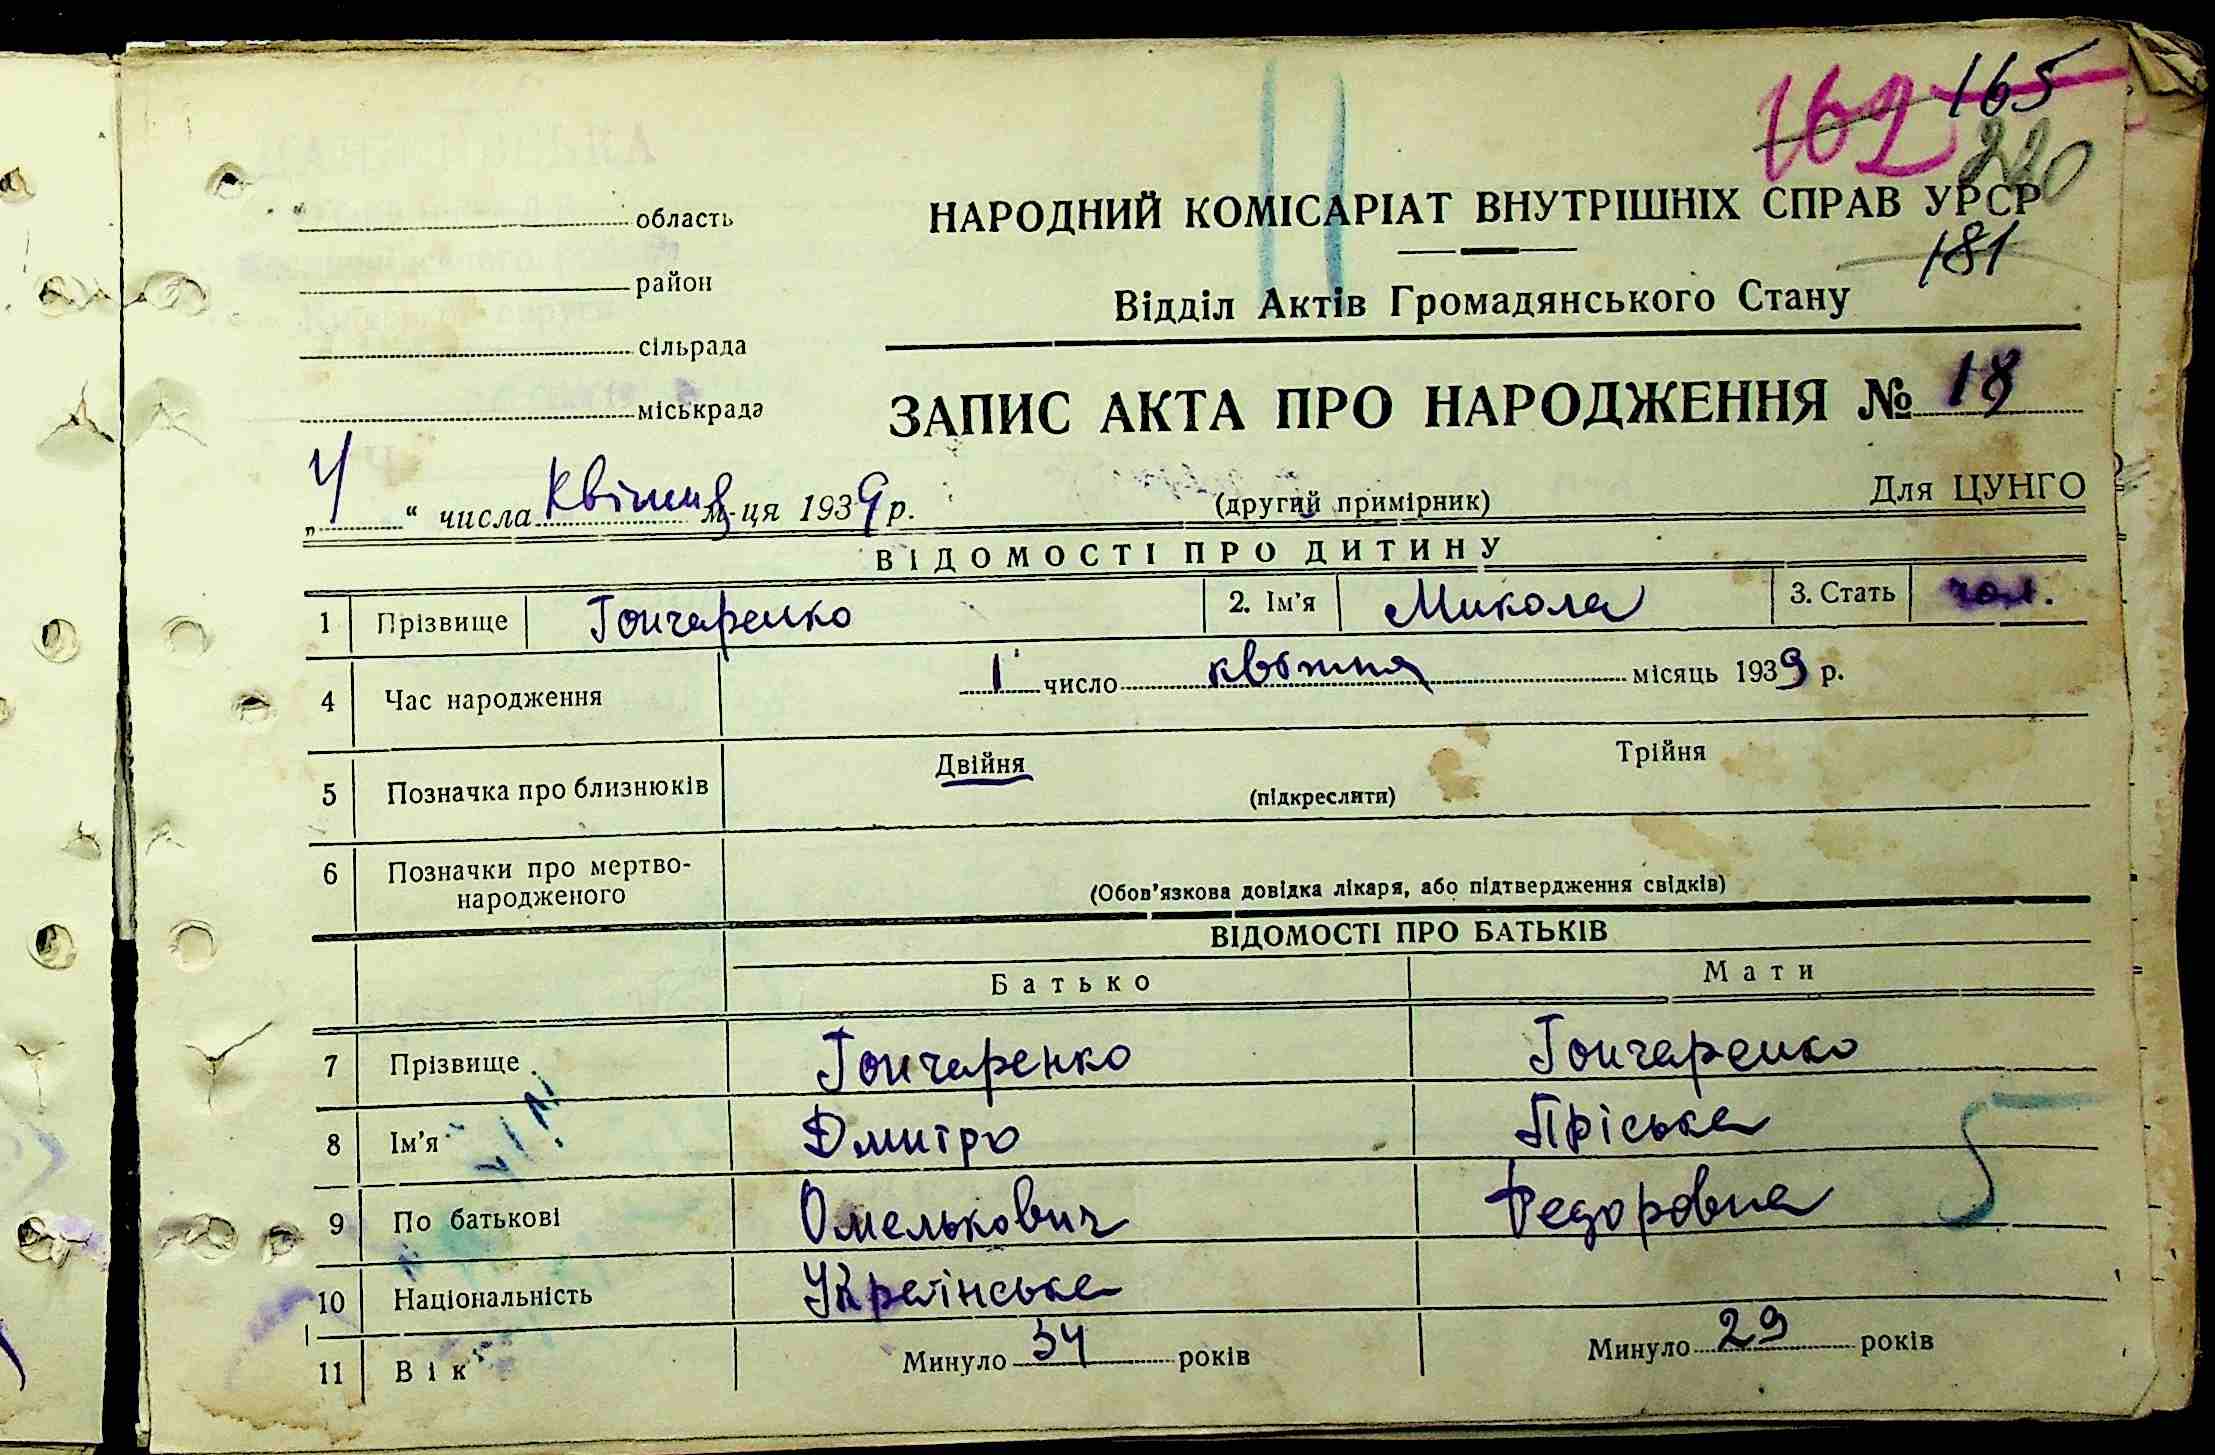 162 165
220
область НАРОДНИЙ КОМІСАРІАТ ВНУТРІШНІХ СПРАВ УРСР
181
район
Відділ Актів Громадянського Стану
сільрада
міськрада ЗАПИС АКТА ПРО НАРОДЖЕННЯ № 18
„4“ числа квітня м-ця 1939 р. (другий примірник) Для ЦУНГО
ВІДОМОСТІ ПРО ДИТИНУ
1 Прізвище Гончаренко 2. Ім'я Микола 3. Стать чол.
4 Час народження 1 число квітня місяць 1939 р.
5 Позначка про близнюків Двійня (підкреслити) Трійня
6 Позначки про мертво-
народженого (Обов'язкова довідка лікаря, або підтвердження свідків)
ВІДОМОСТІ ПРО БАТЬКІВ
Батько Мати
7 Прізвище Гончаренко Гончаренко
8 Ім'я Дмитро Пріська
9 По батькові Омелькович Федоровна
5
10 Національність Українська
11 Вік Минуло 34 років Минуло 29 років